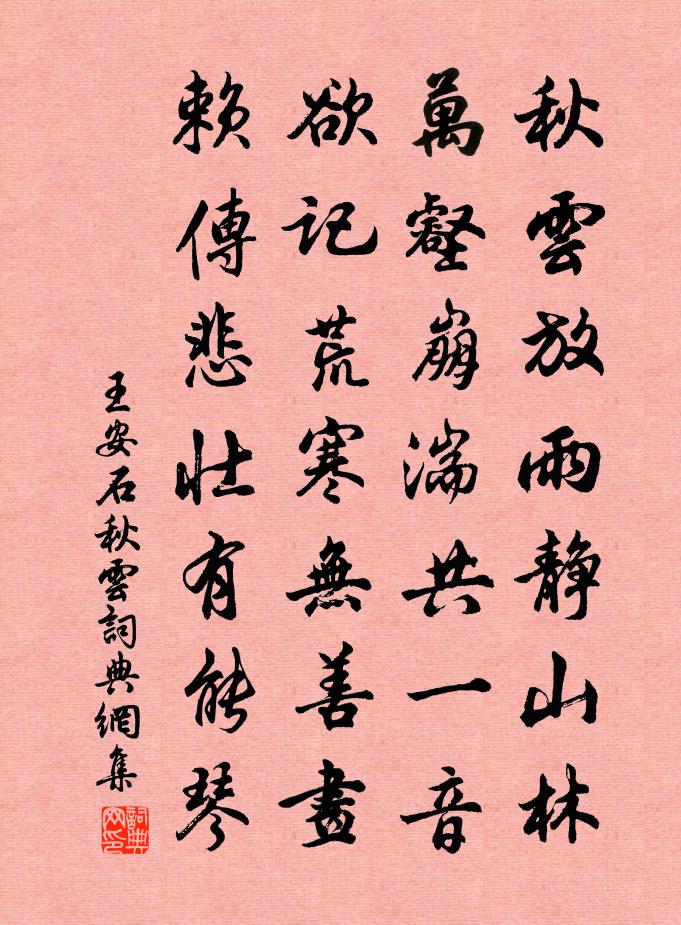 秋雲放雨靜山林
萬壑崩湍共一音
欲記荒寒無善畫
賴傳悲壯有能琴
王安石秋雲詞典網集
詞典网印